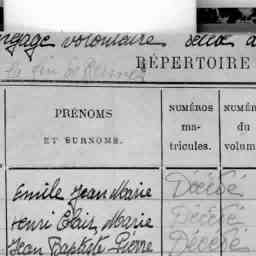 engage volontaire
RÉPERTOIRE
PRÉNOMS
ET SURNOMS.
NUMÉROS
ma-
tricules.
NUMÉR
du
volum
Emile Jean Marie Décédé
Henri Clair Marie Décédé
Jean Baptiste Pierre Décédé